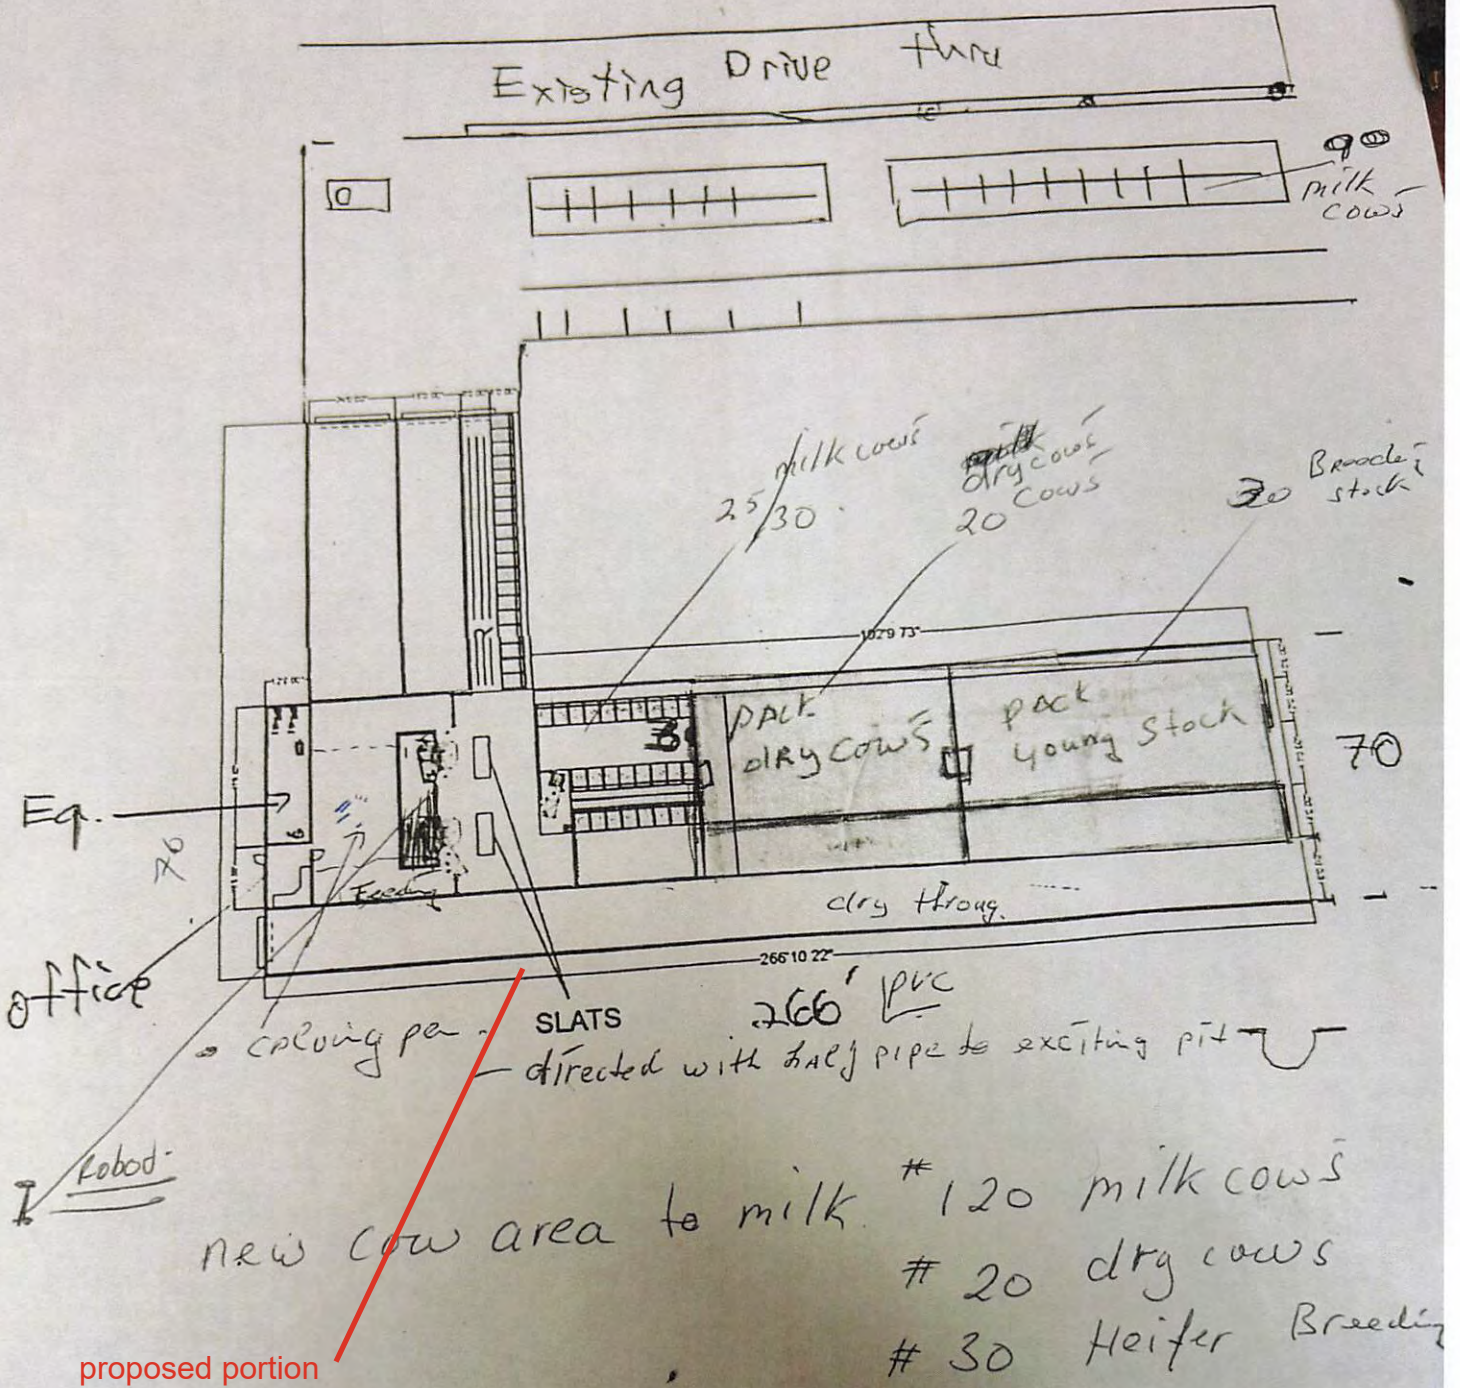 Existing Drive thru
90
milk
cows
milk cows
25/30
dry cows
cows
20
30 Breeding
stock
102'9 73"
PACK
dry cows
pack
young stock
70
Eq.
70
Feeding
dry throug.
office
266'10 22"
266' pvc
SLATS
calving pen
directed with half pipe to exciting pit
Robod
new cow area to milk
# 120 milk cows
# 20 dry cows
# 30 Heifer Breeding
proposed portion